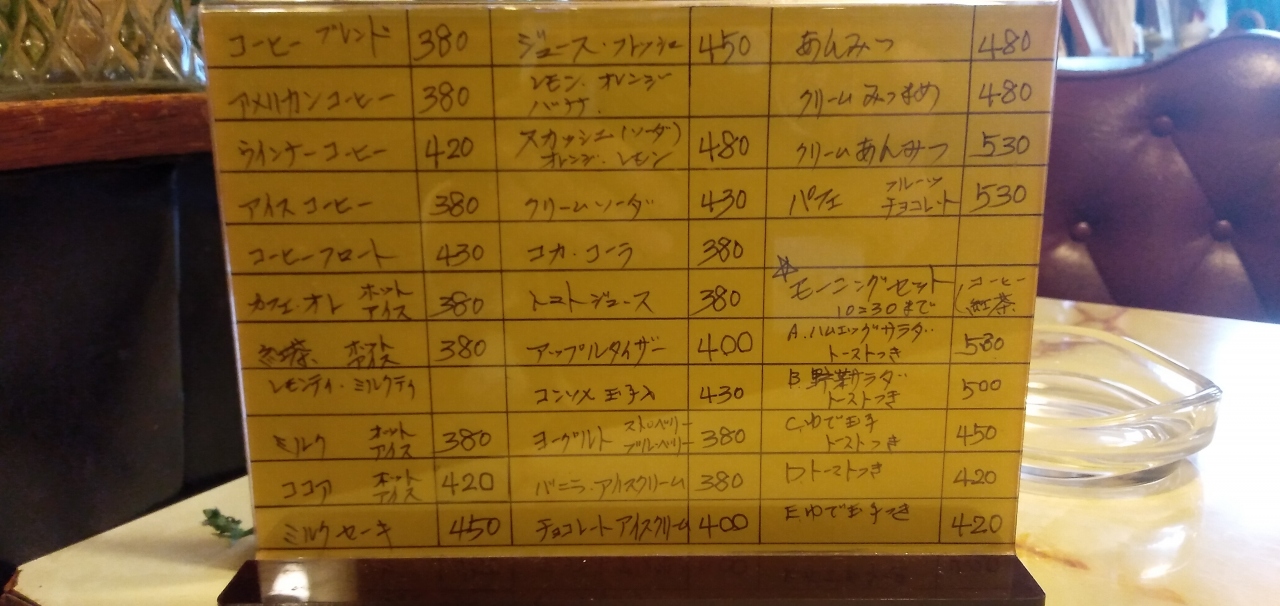 コーヒー ブレンド 380
アメリカンコーヒー 380
ウインナーコーヒー 420
アイスコーヒー 380
コーヒーフロート 430
カフェ・オレ ホット アイス 380
紅茶 ホット アイス 380
レモンティ・ミルクティ
ミルク ホット アイス 380
ココア ホット アイス 420
ミルクセーキ 450
ジュース・フレッシュ 450
レモン・オレンジ
バナナ
スカッシュ(ソーダ) 480
オレンジ・レモン
クリームソーダ 430
コカ・コーラ 380
トマトジュース 380
アップルタイザー 400
コンソメ玉子入 430
ヨーグルト ストロベリー ブルーベリー 380
バニラ・アイスクリーム 380
チョコレートアイスクリーム 400
あんみつ 480
クリームみつまめ 480
クリームあんみつ 530
パフェ フルーツ チョコレート 530
☆モーニングセット (コーヒー 紅茶
10:30まで
A.ハムエッグサラダ 530
トーストつき
B.野菜サラダ 500
トーストつき
C.ゆで玉子 450
トーストつき
D.トーストつき 420
E.ゆで玉子つき 420